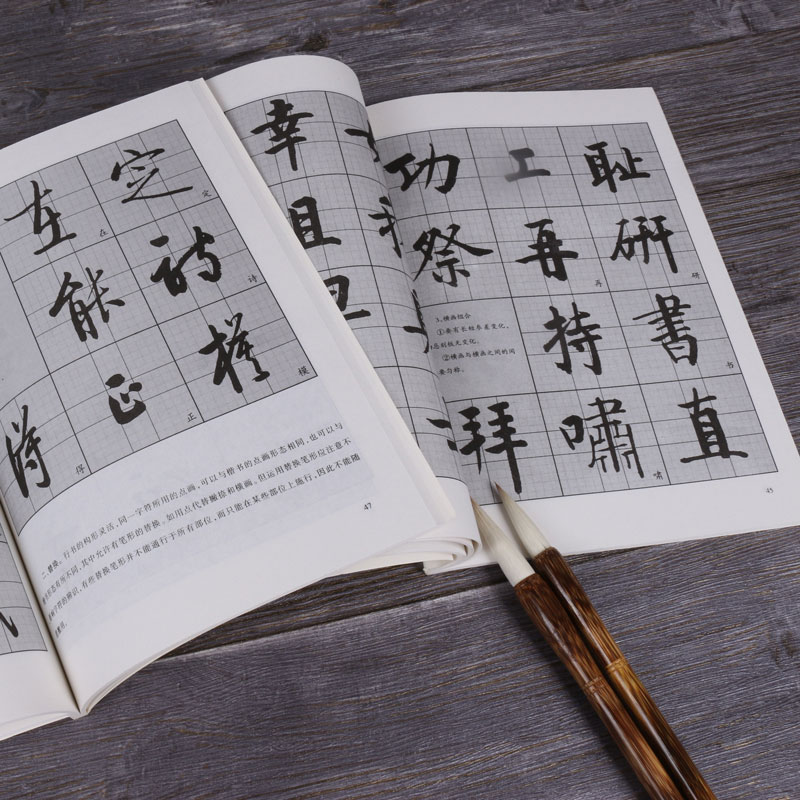 定
在
定
在
能
诗
诗
得
正
模
得
正
模
二、替换。行书的构形灵活，同一字符所用的点画，可以与楷书的点画形态相同，也可以与
形态有所不同，其中允许有笔形的替换。如用点代替撇捺和横画。但运用替换笔形应注意不
的辨识，有些替换笔形并不能通行于所有部位，而只能在某些部位上施行，因此不能随
47
幸
且
丑
功
工
耻
祭
再
研
再
研
3、横画组合
①要有长短参差变化，
②横画与横画之间的间
要匀称。
持
書
书
拜
嘯
直
啸
45